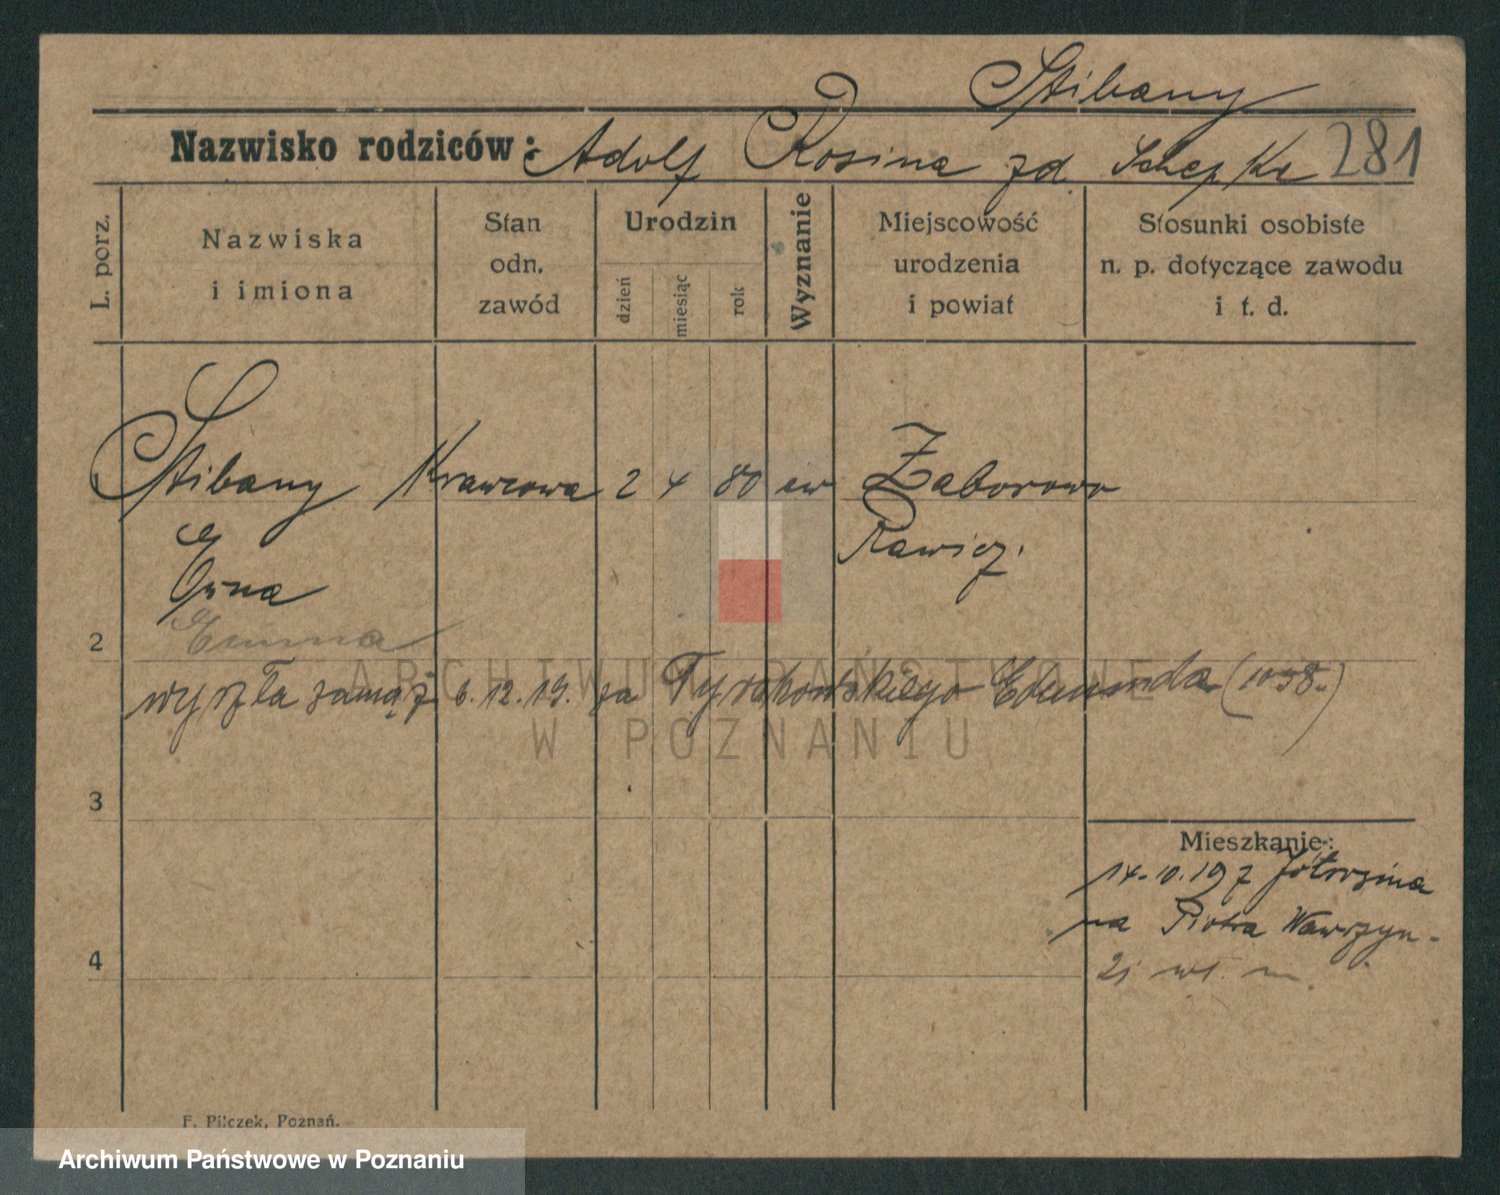 Stibany
Nazwisko rodziców: Adolf Rosina zd Schepke 281
L. porz.
Nazwiska i imiona
Stan odn. zawód
Urodzin
dzień miesiąc rok
Wyznanie
Miejscowość urodzenia i powiat
Stosunki osobiste n. p. dotyczące zawodu i t. d.
Stibany Krawcowa 2 4 80 ew Zaborowo
Rawicz.
Erna
Emma
2
wyszła zamąż 6.12.19. za Tyrakowskiego Edmunda (1058.)
3
Mieszkanie:
14.10.19 z Jótrosina
na Piotra Wawrzyn-
4
F. Pilczek, Poznań.
ARCHIWUM PAŃSTWOWE
W POZNANIU
Archiwum Państwowe w Poznaniu